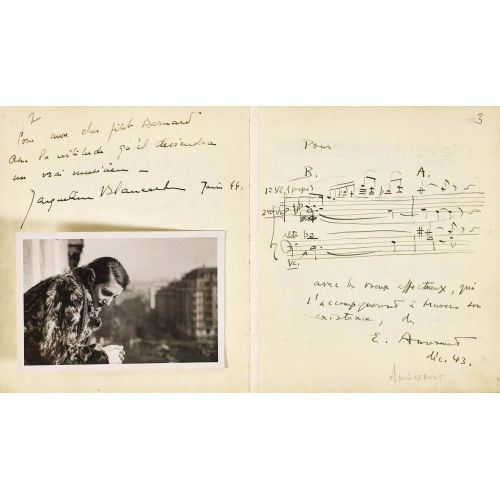 2
Pour mon cher petit Bernard
Avec la certitude qu'il deviendra
un vrai musicien –
Jacqueline Blancard Juin 44.
3
Pour
B. A.
1er Vl. (pizz)
2d Vl.
alto
Vc.
avec les voeux affectueux, qui
l'accompagneront à travers son
existence, de
E. Ansermet
déc. 43.
Ansermet